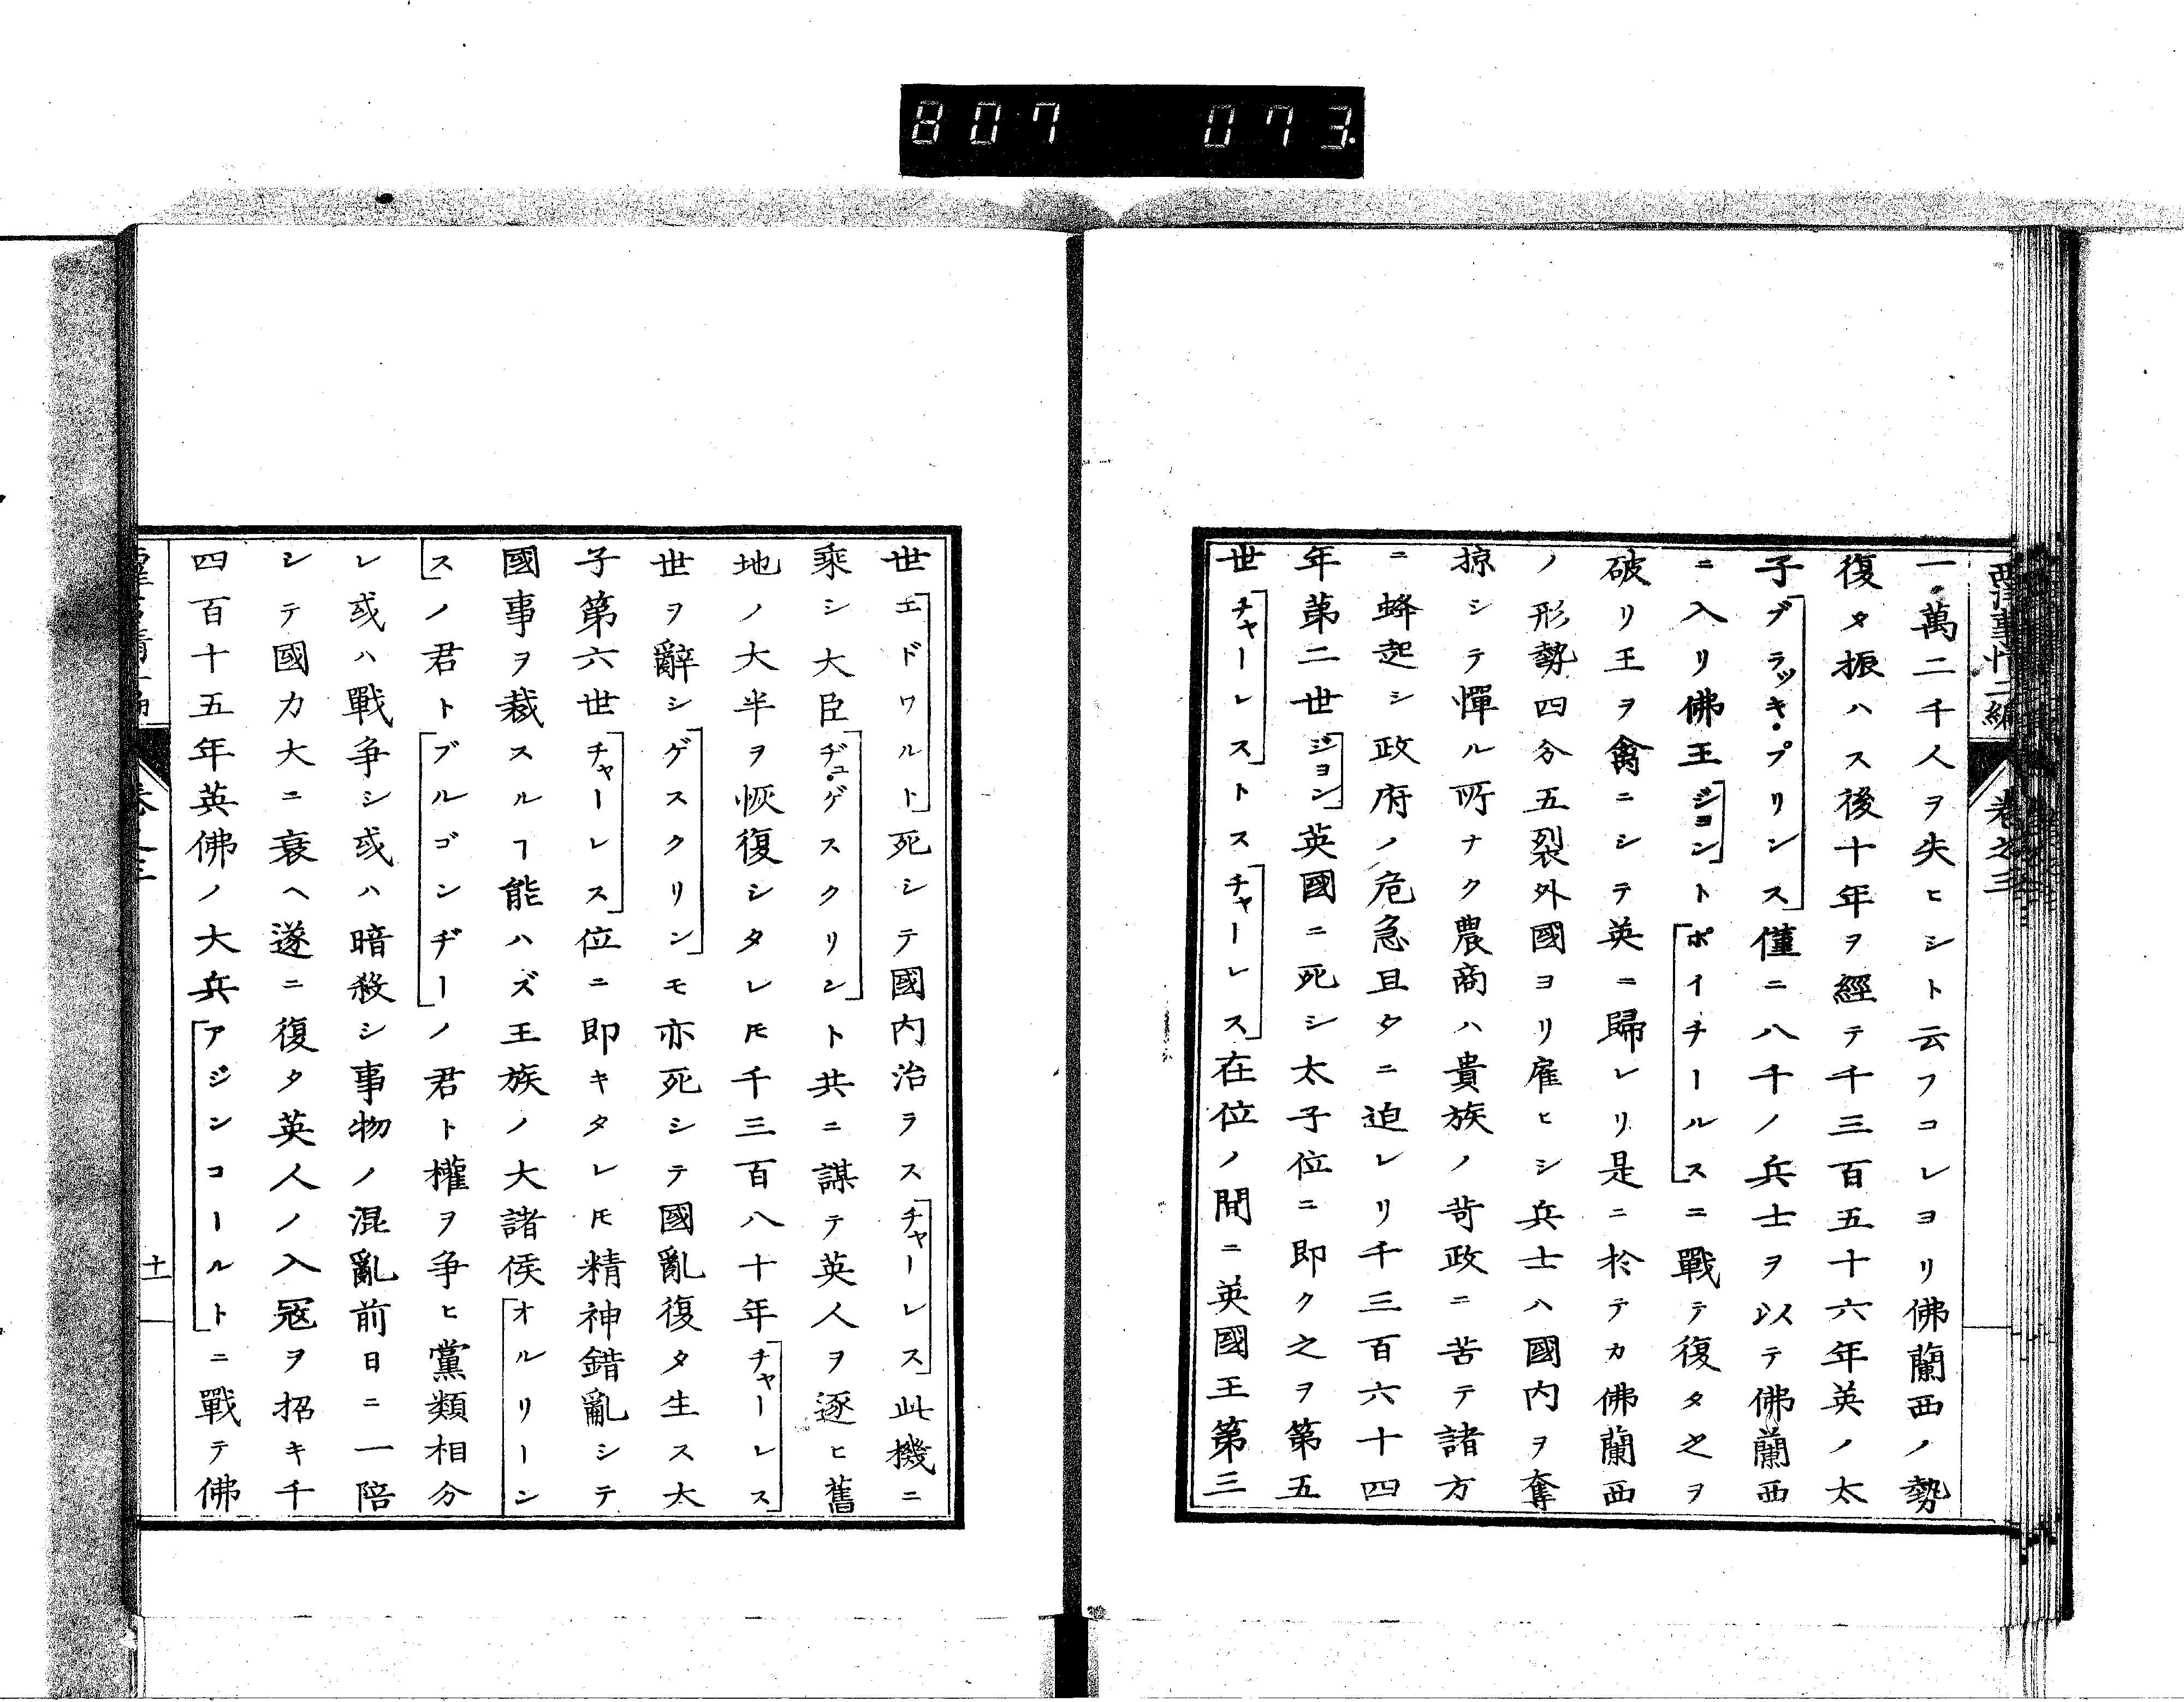 807 073
西洋事情二編
卷之三
一萬二千人ヲ失ヒシト云フコレヨリ佛蘭西ノ勢
復タ振ハス後十年ヲ經テ千三百五十六年英ノ太
子「ブラッキ・プリンス」僅ニ八千ノ兵士ヲ以テ佛蘭西
ニ入リ佛王「ジョン」ト「ポイチールス」ニ戰テ復タ之ヲ
破リ王ヲ禽ニシテ英ニ歸レリ是ニ於テカ佛蘭西
ノ形勢四分五裂外國ヨリ雇ヒシ兵士ハ國内ヲ奪
掠シテ憚ル所ナク農商ハ貴族ノ苛政ニ苦テ諸方
ニ蜂起シ政府ノ危急且タニ迫レリ千三百六十四
年第二世「ジョン」英國ニ死シ太子位ニ即ク之ヲ第五
世「チャーレス」トス「チャーレス」在位ノ間ニ英國王第三
世「エドワルト」死シテ國内治ラス「チャーレス」此機ニ
乘シ大臣「ヂュ・ゲスクリン」ト共ニ謀テ英人ヲ逐ヒ舊
地ノ大半ヲ恢復シタレ𪜈千三百八十年「チャーレス」
世ヲ辭シ「ゲスクリン」モ亦死シテ國亂復タ生ス太
子第六世「チャーレス」位ニ即キタレ𪜈精神錯亂シテ
國事ヲ裁スルヿ能ハズ王族ノ大諸侯「オルリーン
ス」ノ君ト「ブルゴンヂー」ノ君ト權ヲ争ヒ黨類相分
レ或ハ戰争シ或ハ暗殺シ事物ノ混亂前日ニ一陪
シテ國力大ニ衰ヘ遂ニ復タ英人ノ入冦ヲ招キ千
四百十五年英佛ノ大兵「アジンコールト」ニ戰テ佛
十一